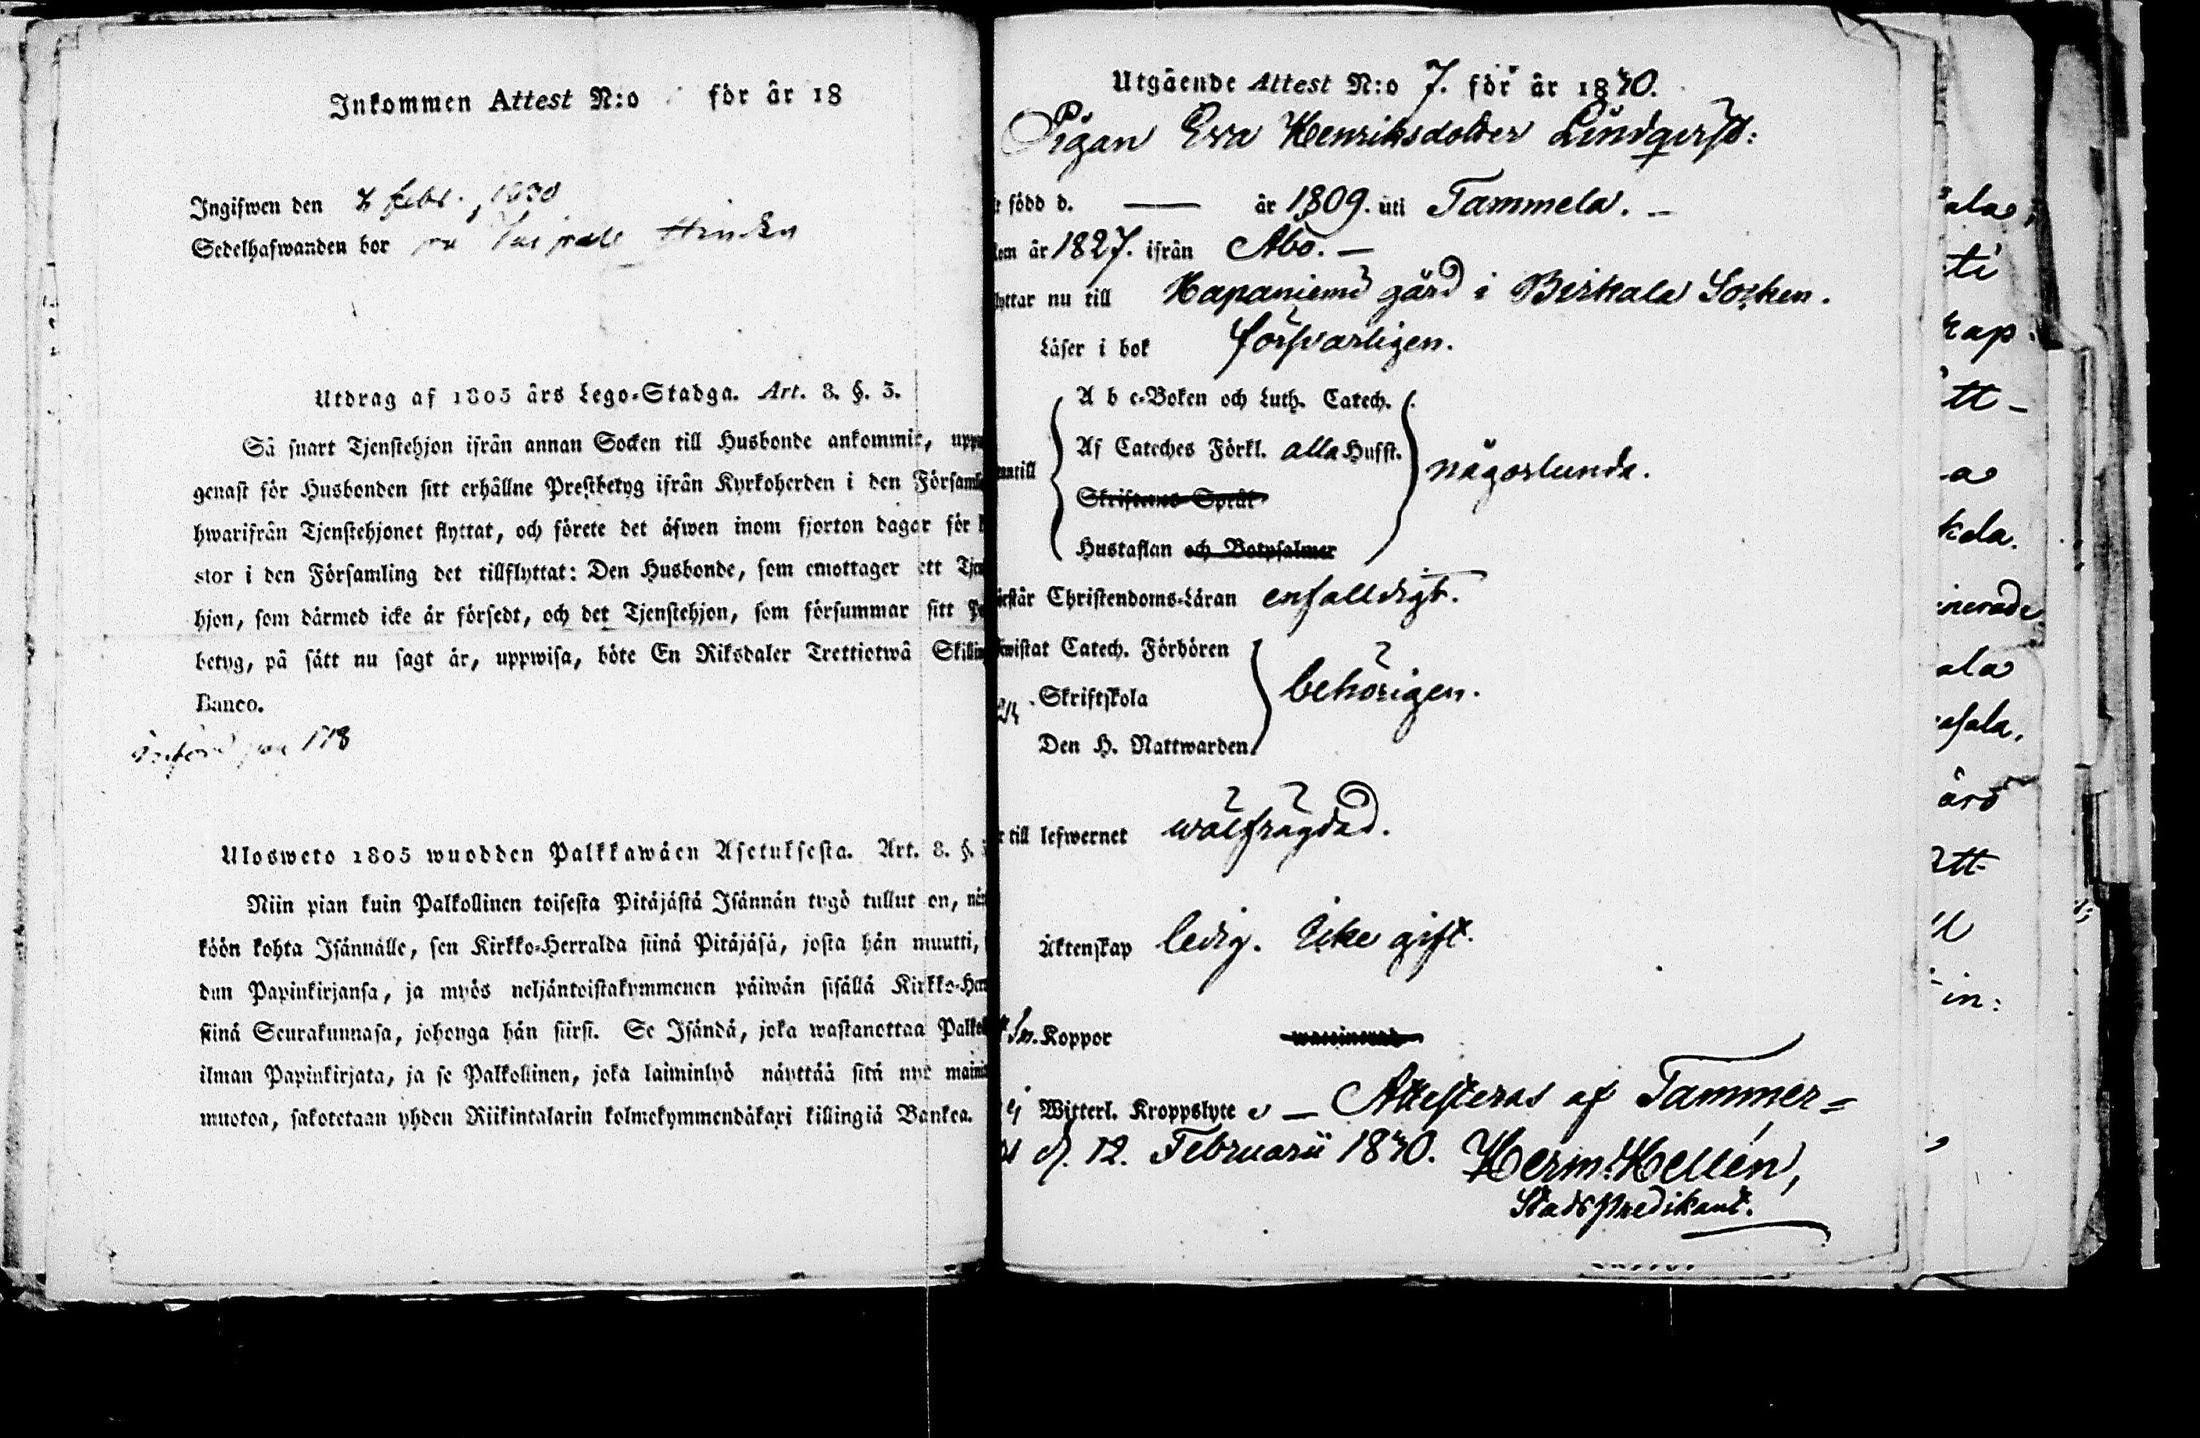 Inkommen Attest N:o för år 18
Ingifwen den febr. 1830
Sedelhafwanden bor
Utdrag af 1805 års Lego-Stadga. Art. 8. §. 3.
Så snart Tjenstehjon ifrån annan Socken till Husbonde ankommit,
genast för Husbonden sitt erhållne Prestbetyg ifrån Kyrkoherden i den
hwarifrån Tjenstehjonet flyttat, och förete det äfwen inom fjorton dagar för
stor i den Församling det tillflyttat: Den Husbonde, som emottager ett
hjon, som därmed icke är försedt, och det Tjenstehjon, som försummar sitt
betyg, på sätt nu sagt är, uppwisa, böte En Riksdaler Trettiotwå
Banco.
178
Ulosweto 1805 wuodden Palkkawäen Asetuksesta. Art. 8. §.
Niin pian kuin Palkollinen toisesta Pitäjästä Isännän tygö tullut on,
köön kohta Isännälle, sen Kirkko-Herralda siinä Pitäjäsä, josta hän muutti,
dun Papinkirjansa, ja myös neljäntoistakymmenen päiwän sisällä
siinä Seurakunnasa, johonga hän siirsi. Se Isändä, joka wastanottaa
ilman Papinkirjata, ja se Palkollinen, joka laiminlyö näyttää sitä nyt
muotoa, sakotetaan yhden Riikintalarin kolmekymmendäkaxi killingiä Bankea.
Utgående Attest N:o 7. för år 1830.
Pigan Eva Henriksdotter Lindqvist:
född d. — år 1809. uti Tammela. —
år 1827. ifrån Åbo. —
nu till Hapaniemi gård i Birkala Socken.
Läser i bok försvarligen.
A b c-Boken och Luth. Catech.
Af Cateches Förkl. alla Husst.
någorlunda.
Skriftenes Språk
Hustaflan och Botpsalmer
Christendoms-Läran enfalldigt.
Catech. Förhören
Skriftskola
behörigen.
Den H. Nattwarden
till lefwernet wälfrägdad.
Äktenskap ledig. Icke gift.
Koppor waccinerad
Witterl. Kroppslyte — Attesteras af Tammer=
d. 12. Februarii 1830. Herm: Hellén,
Stadspredikant.